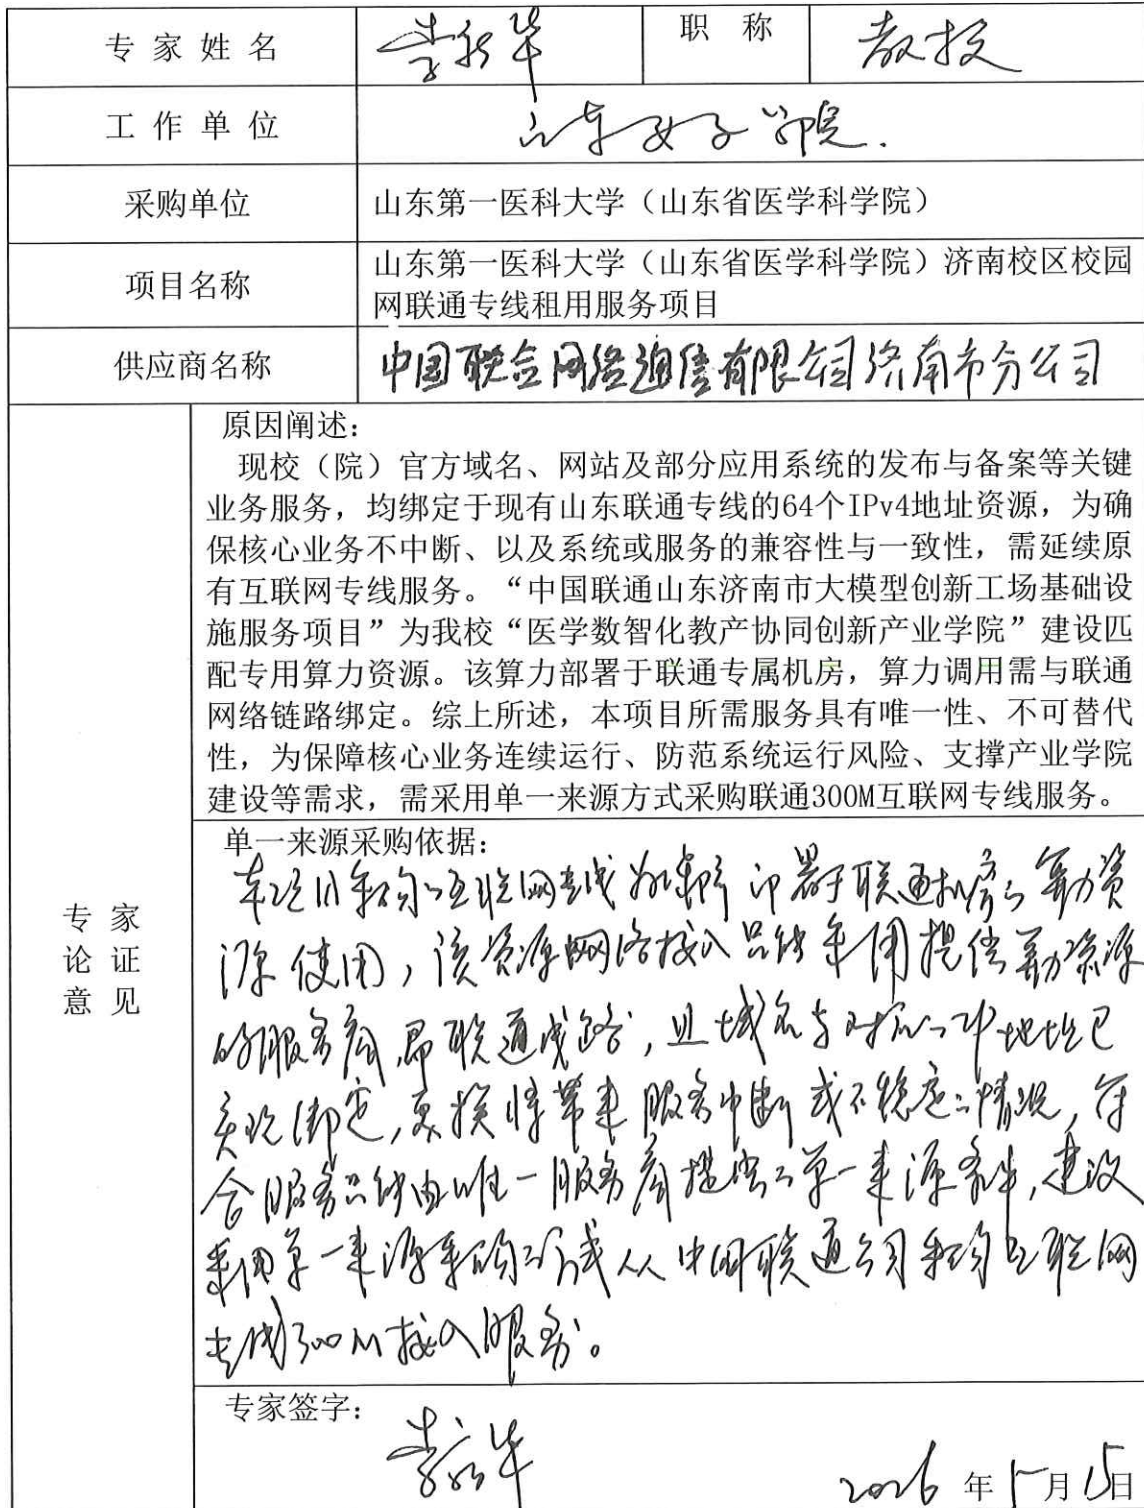 专家姓名 李新华 职称 教授
工作单位 山东女子学院.
采购单位 山东第一医科大学（山东省医学科学院）
项目名称 山东第一医科大学（山东省医学科学院）济南校区校园
网联通专线租用服务项目
供应商名称 中国联合网络通信有限公司济南市分公司
原因阐述：
现校（院）官方域名、网站及部分应用系统的发布与备案等关键
业务服务，均绑定于现有山东联通专线的64个IPv4地址资源，为确
保核心业务不中断、以及系统或服务的兼容性与一致性，需延续原
有互联网专线服务。“中国联通山东济南市大模型创新工场基础设
施服务项目”为我校“医学数智化教产协同创新产业学院”建设匹
配专用算力资源。该算力部署于联通专属机房，算力调用需与联通
网络链路绑定。综上所述，本项目所需服务具有唯一性、不可替代
性，为保障核心业务连续运行、防范系统运行风险、支撑产业学院
建设等需求，需采用单一来源方式采购联通300M互联网专线服务。
专家
论证
意见
单一来源采购依据：
本项目采购的互联网专线 部署于联通机房的算力资
源使用，该资源网络接入只能采用提供算力资源
的服务商，即联通线路，且域名与对应的IP地址已
实现绑定，更换将带来服务中断或不稳定的情况，符
合服务只能由唯一服务商提供的单一来源条件，建议
采用单一来源采购方式从中国联通公司采购互联网
专线300M接入服务。
专家签字：
李新华
2026年 月15日